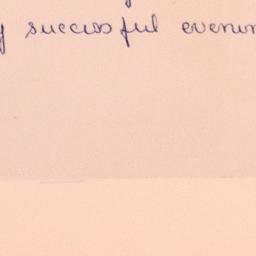 y successful evenin